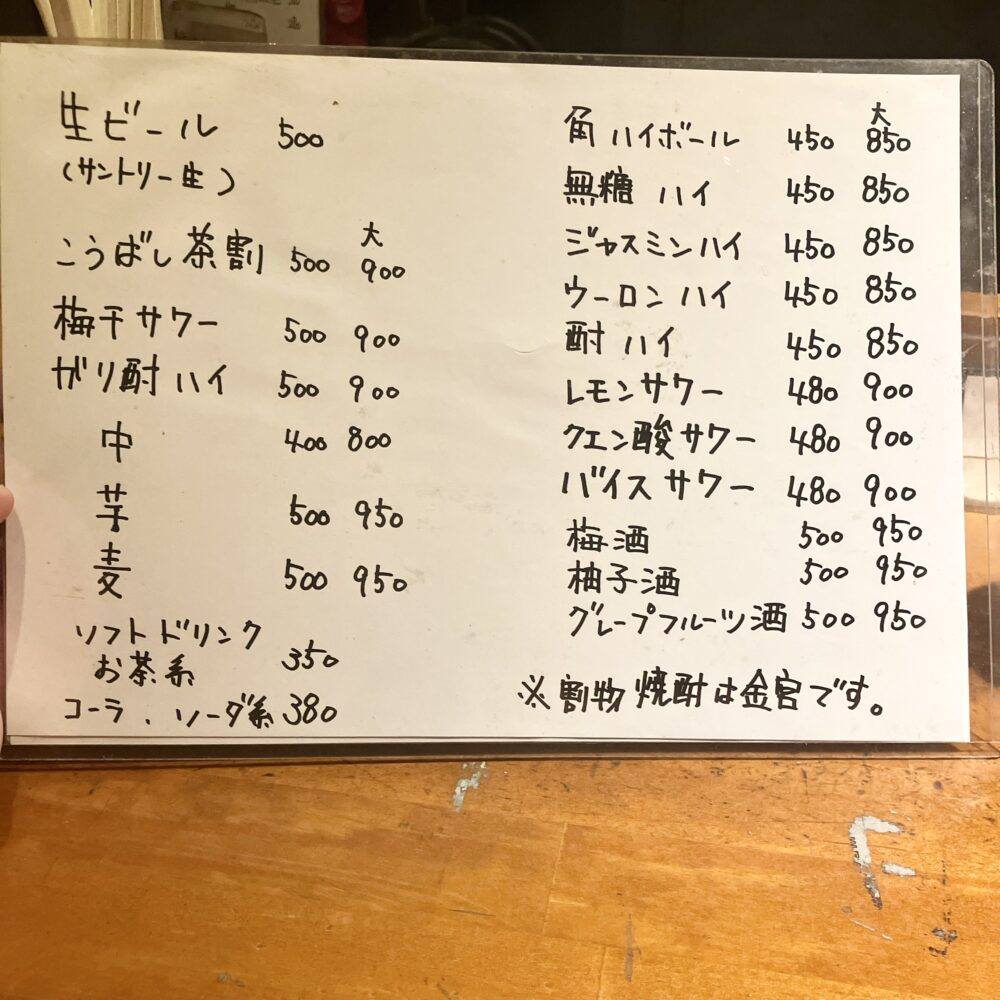 生ビール 500
(サントリー生)
大
こうばし茶割 500 900
梅干サワー 500 900
ガリ酎ハイ 500 900
中 400 800
芋 500 950
麦 500 950
ソフトドリンク
お茶系 350
コーラ、ソーダ系 380
大
角ハイボール 450 850
無糖ハイ 450 850
ジャスミンハイ 450 850
ウーロンハイ 450 850
酎ハイ 450 850
レモンサワー 480 900
クエン酸サワー 480 900
バイスサワー 480 900
梅酒 500 950
柚子酒 500 950
グレープフルーツ酒 500 950
※割物焼酎は金宮です。